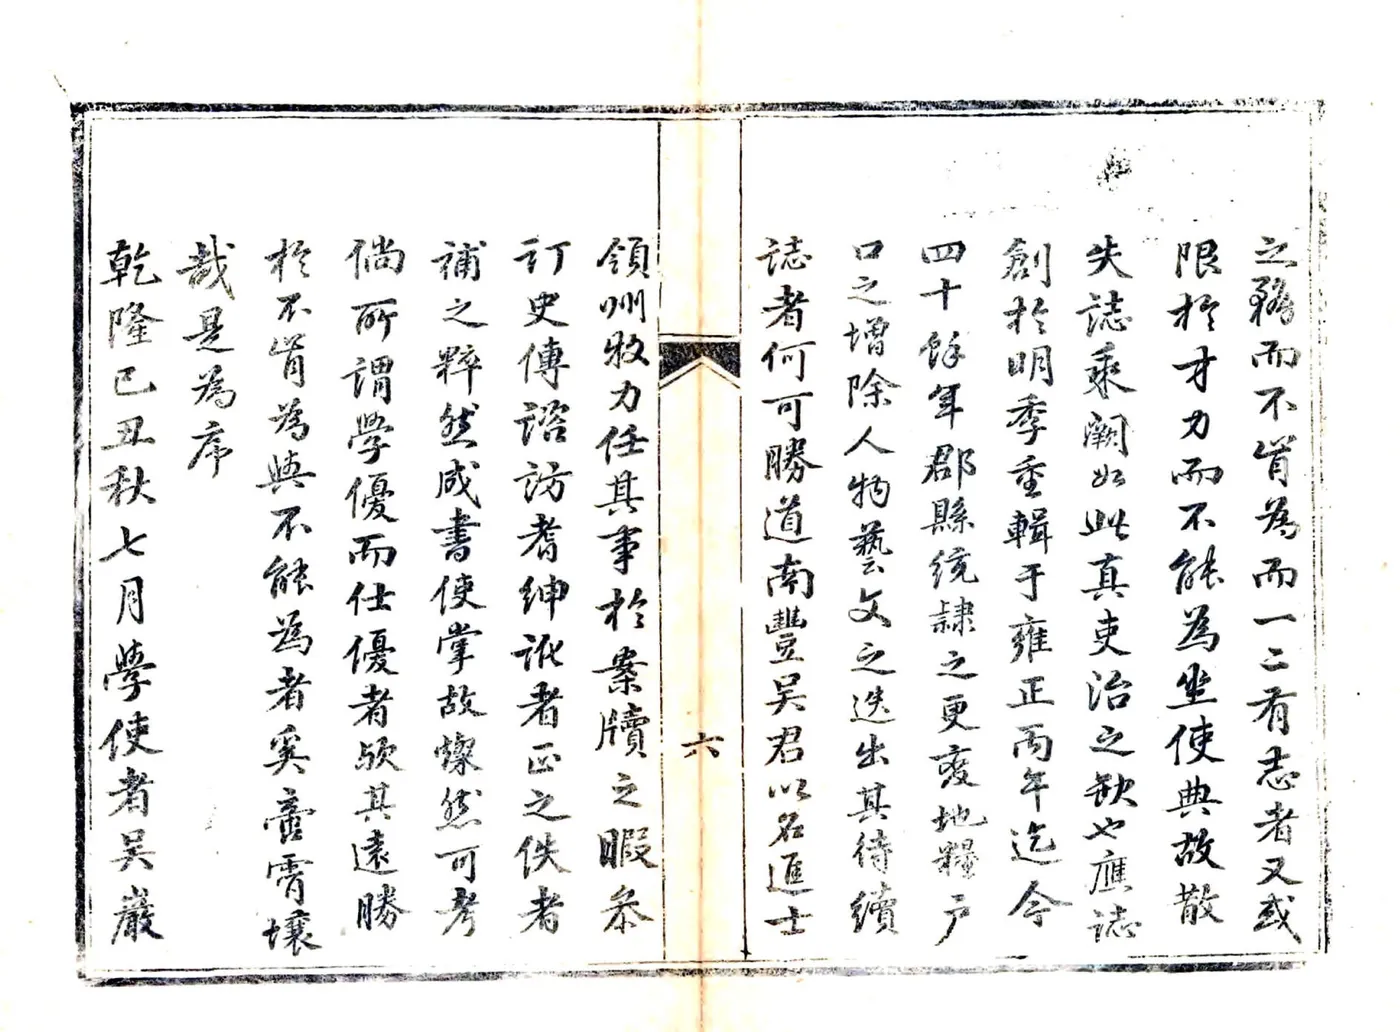 之務而不肯為而一二有志者又或
限於才力而不能為坐使典故散
失誌乘闕如此真吏治之缺也應誌
創於明季重輯于雍正丙午迄今
四十餘年郡縣統隸之更變地糧户
口之增除人物藝文之迭出其待續
誌者何可勝道南豐吳君以名進士
六
領州牧力任其事於案牘之暇叅
訂史傳諮訪耆紳訛者正之佚者
補之粹然成書使掌故燦然可考
倘所謂學優而仕優者歟其遠勝
於不肯為與不能為者奚啻霄壤
哉是為序
乾隆己丑秋七月學使者吳巖